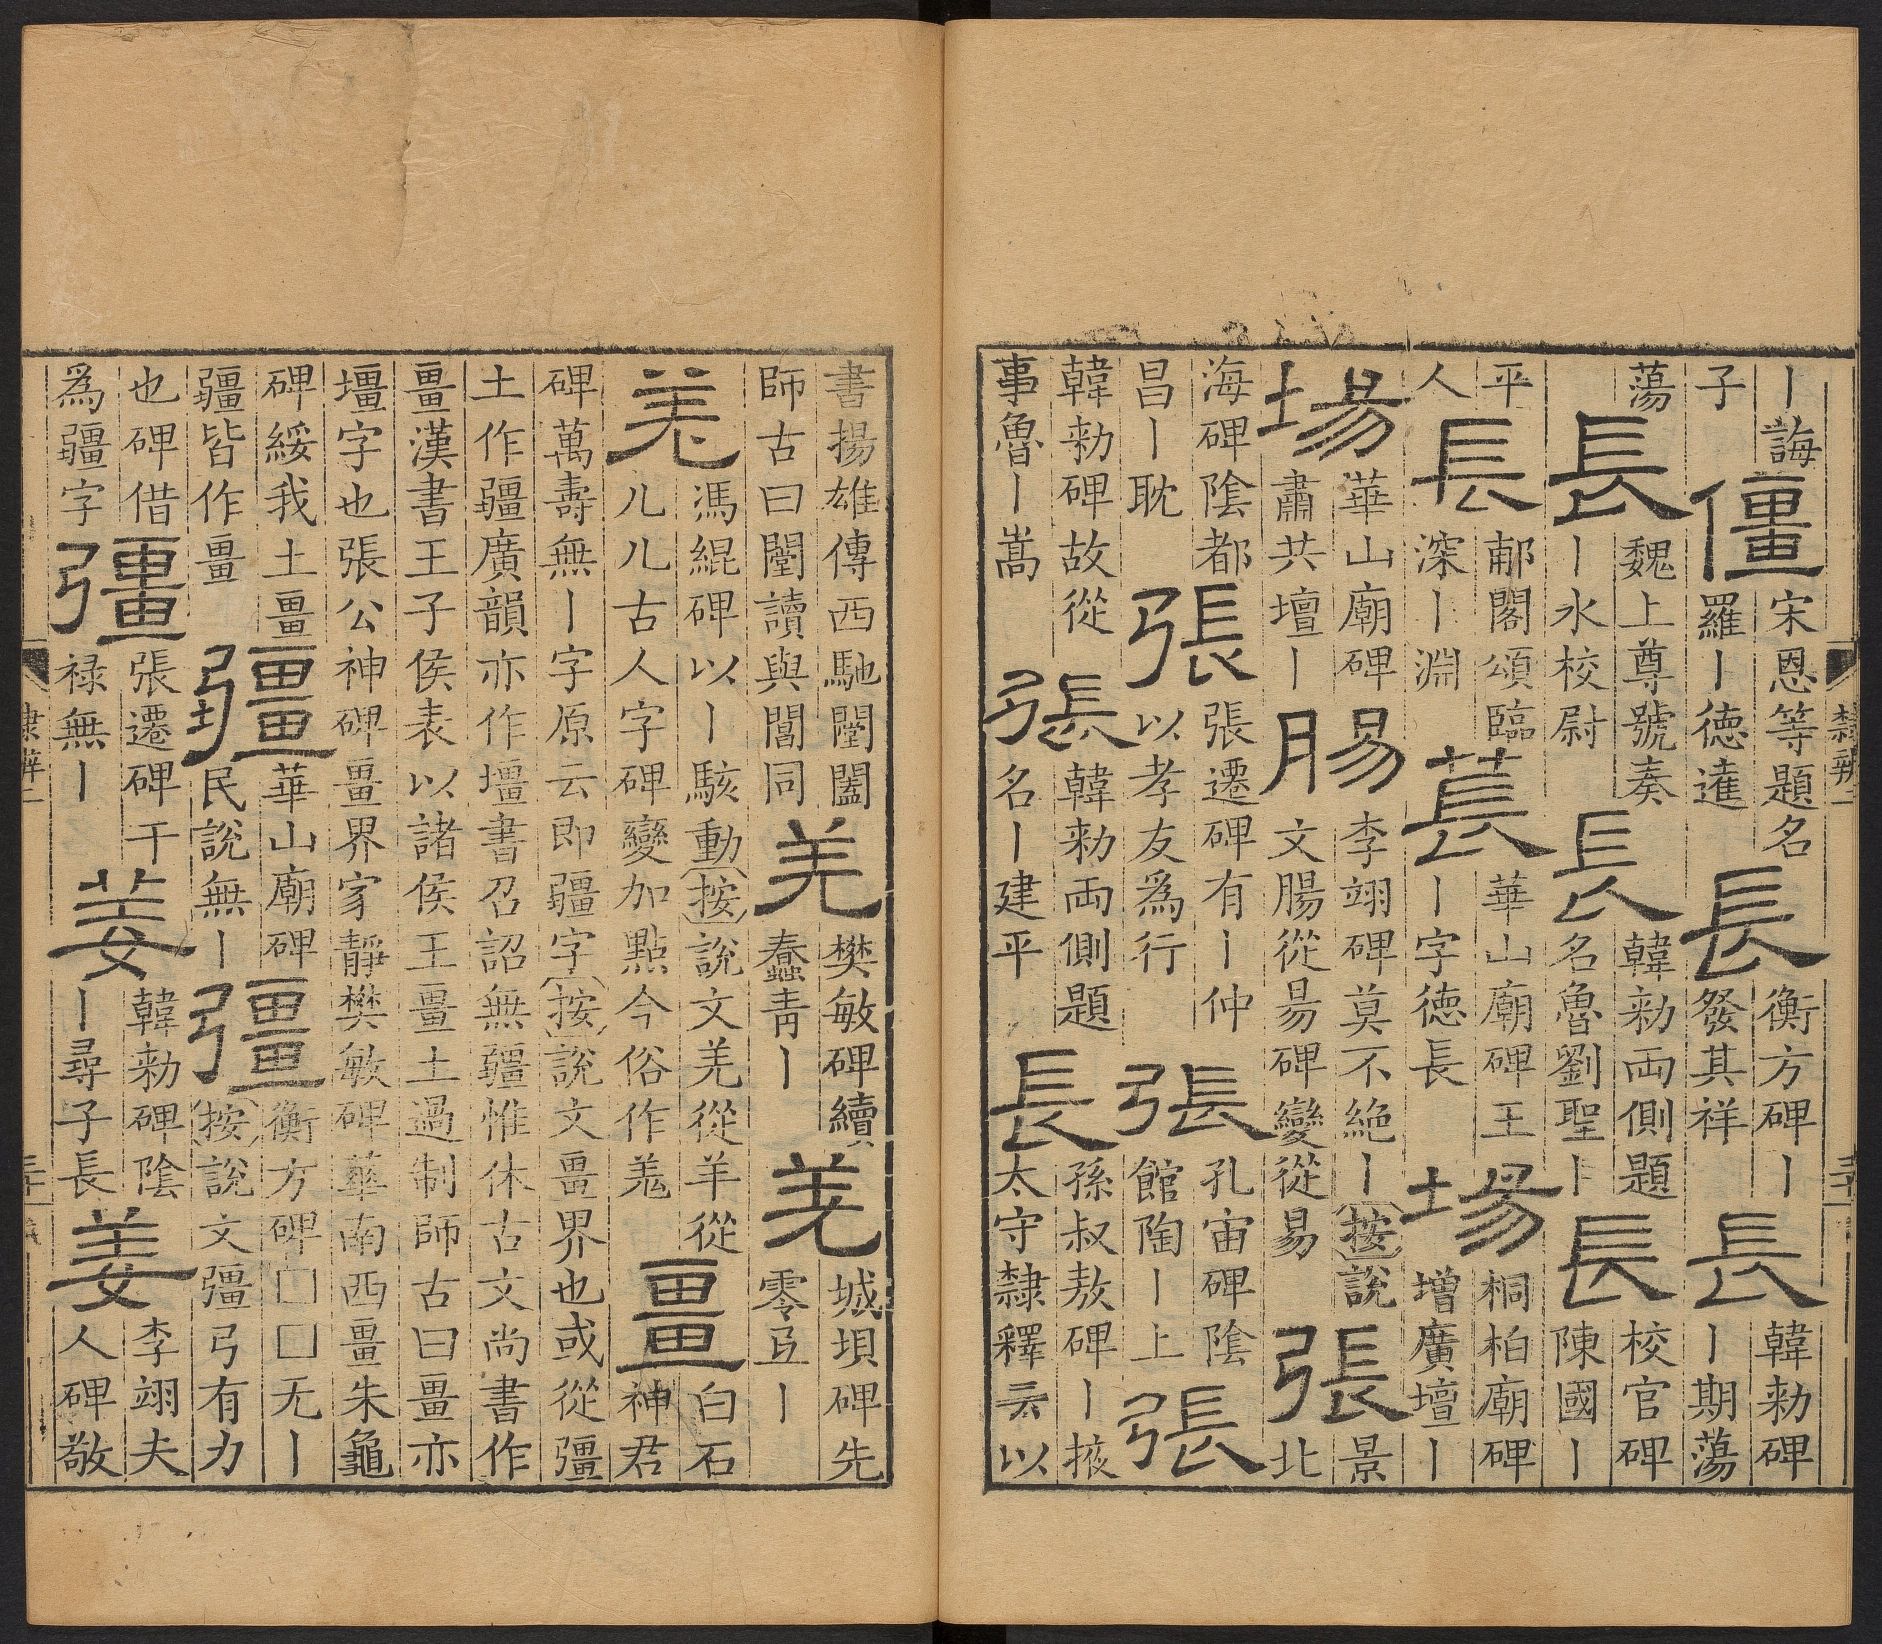 丨誨子僵宋恩等題名羅丨德達長衡方碑丨發其祥長韓勑碑丨期蕩
蕩長魏上尊號奏丨水校尉長韓勑兩側題名魯劉聖丨長校官碑陳國丨
平人長郙閣頌臨深丨淵萇華山廟碑王丨字德長場桐柏廟碑增廣壇丨
場華山廟碑肅共壇丨腸李翊碑莫不絶丨按說文腸從昜碑變從易張景北
海碑陰都昌丨耽張張遷碑有丨仲以孝友為行張孔宙碑陰館陶丨上張
韓勑碑故從事魯丨嵩張韓勑兩側題名丨建平長孫叔敖碑丨掖太守隸釋云以
書揚雄傳西馳闛闔師古曰闛讀與閶同羌樊敏碑續蠢青丨羌城垻碑先零㠯丨
羌馮緄碑以丨駭動按說文羌從羊從儿儿古人字碑變加點今俗作羗畺白石神君
碑萬壽無丨字原云即疆字按說文畺界也或從彊土作疆廣韻亦作壃書召詔無疆惟休古文尚書作
畺漢書王子侯表以諸侯王畺土過制師古曰畺亦壃字也張公神碑畺界家靜樊敏碑華南西畺朱龜
碑綏我土畺疆皆作畺疆華山廟碑民說無丨彊衡方碑□□无丨按說文彊弓有力
也碑借為疆字彊張遷碑干祿無丨姜韓勑碑陰丨尋子長姜李翊夫人碑敬